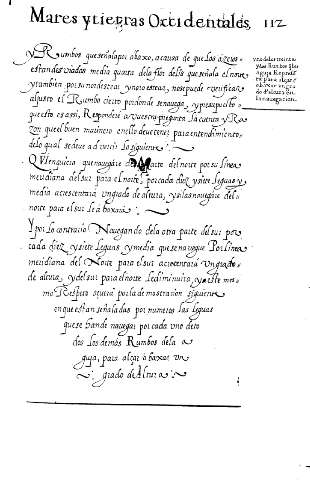 Mares y tierras Occidentales. 112
y Rumbos que señala por abaxo, a causa de que los azeros
estan desviados media quarta dela flor delis que señala el norte
y tambien por su nordestear y noroestear, nosepuede verificar
al justo el Rumbo cierto por donde se nauega, y presupuesto
que esto es assi, Respondere a vuestra pregunta la cuenta y Ra
zon que el buen marinero en ello deue tener para entendimiento,
delo qual se deue aduertir lo siguiente
Quienquiera que nauegare de la parte del norte por su linea
meridiana del sur para el norte, por cada diez y siete leguas y
media acrescentará un grado de altura, y si las nauegare del
norte para el sur le abaxara
y por lo contrario Nauegando dela otra parte del sur por
cada diez y siete leguas y media que se nauegue Por linea
meridiana del Norte para el sur acrecentará un grado
de altura, y del sur para el norte le diminuira, y a este mes
mo Respeto seruira por la demostracion siguiente
en que estan señaladas por numeros las leguas
que se han de nauegar por cada uno de to
dos los demas Rumbos dela a
guja, para alçar o baxar un
grado de Altura